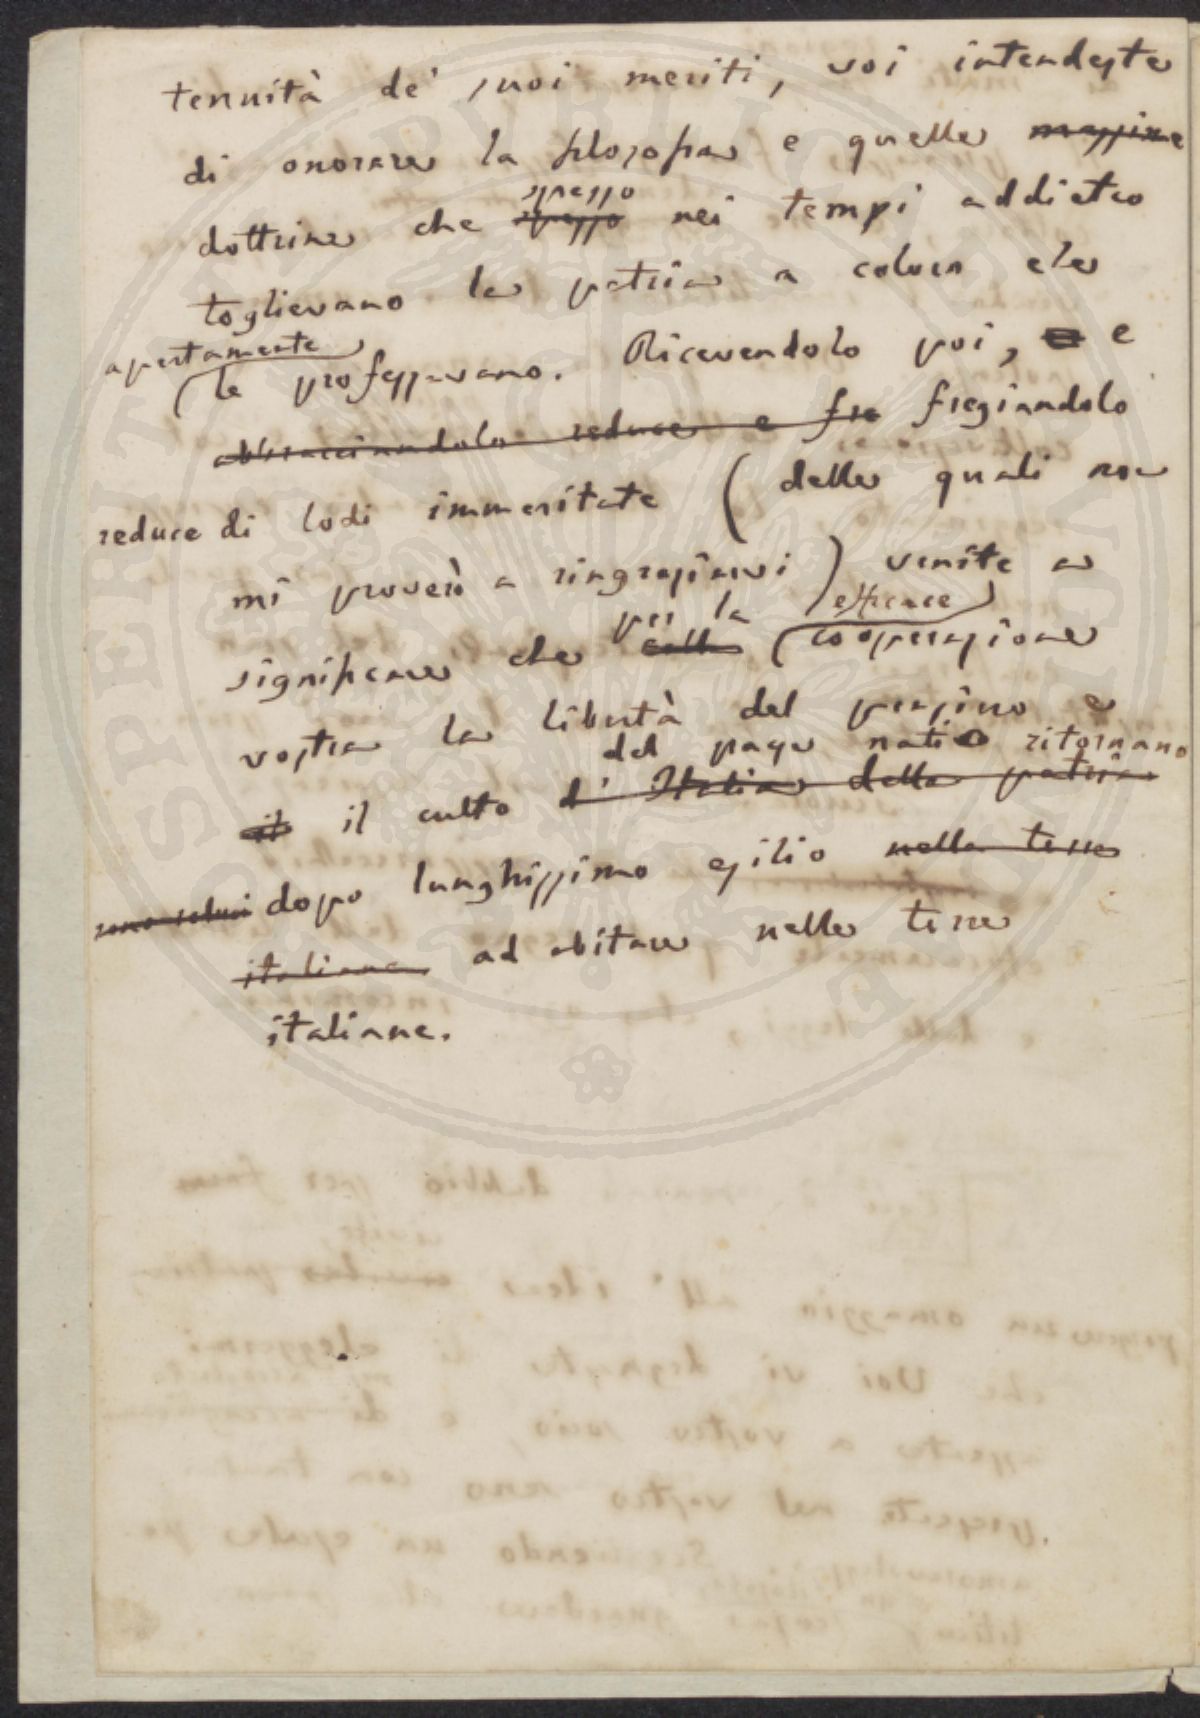 tenuità de' suoi meriti, voi intendeste
di onorare la filosofia e quelle massime
dottrine che spesso spesso nei tempi addietro
toglievano la patria a coloro che
apertamente
le professavano. Ricevendolo poi, e e
abbracciandolo reduce e fre fregiandolo
reduce di lodi immeritate (delle quali non
mi proverò a ringraziarvi) venite a
significare che colla per la efficace cooperazione
vostra la libertà del pensiero e
del paese natio ritornano
it il culto d'Italia della patria
sono reduci dopo lunghissimo esilio nelle terre
italiane ad abitare nelle terre
italiane.